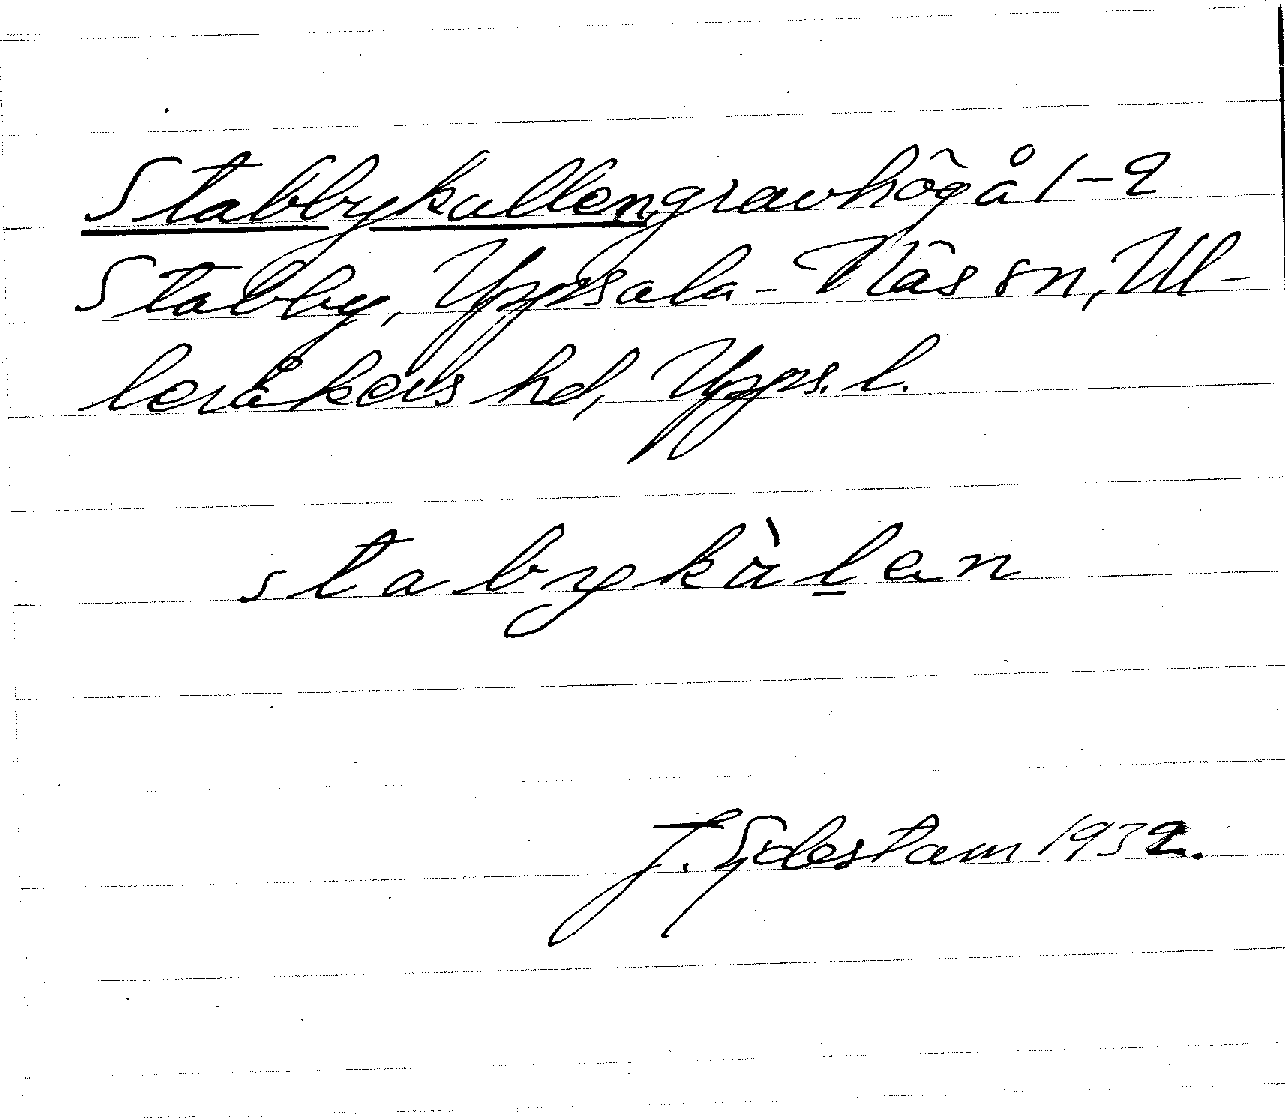 Stabbykullen gravhög å 1-2
Stabby, Uppsala-Näs sn, Ul-
leråkers hd, Upps. l.
stabykàḻen
J. Sjdestam 1932.